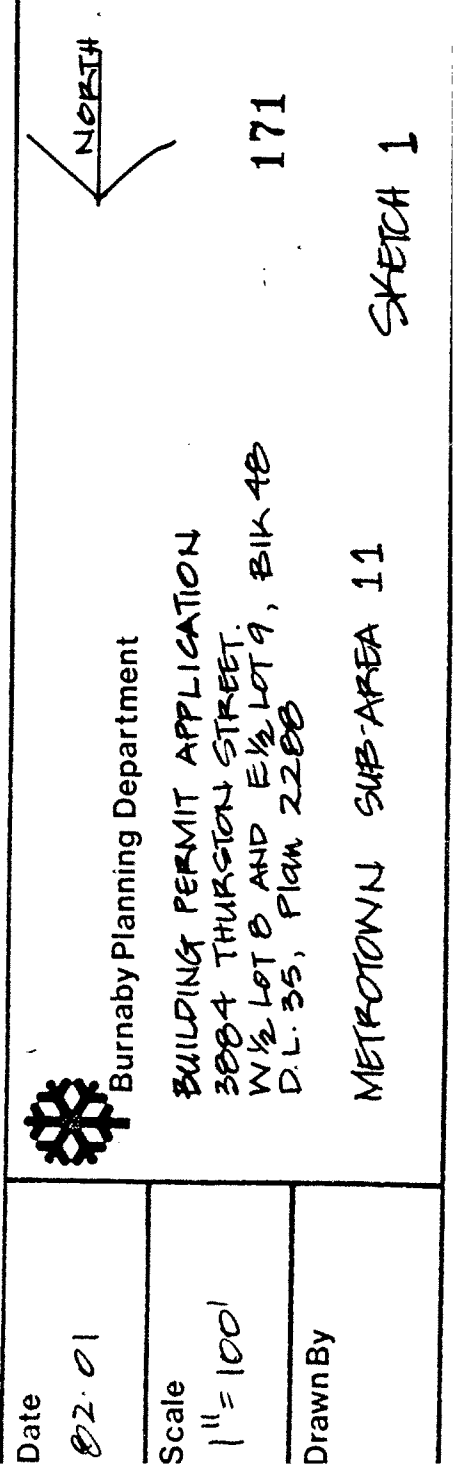 Date
82.01
Scale
1" = 100'
Drawn By
Burnaby Planning Department
BUILDING PERMIT APPLICATION
3884 THURSTON STREET.
W½ LOT 8 AND E½ LOT 9, Blk 48
D.L. 35, Plan 2288
METROTOWN SUB-AREA 11
NORTH
171
SKETCH 1